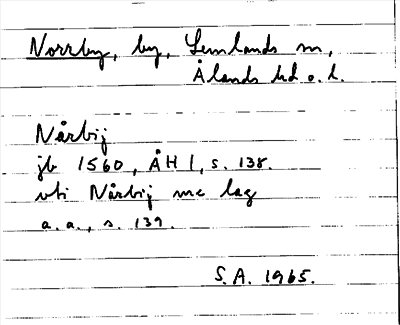 Norrby, by, Lemlands sn,
Ålands hd o. l.
Nårbij
jb 1560, ÅH 1, s. 138.
uti Nårbij me lag
a. a., s. 139.
S.A. 1965.